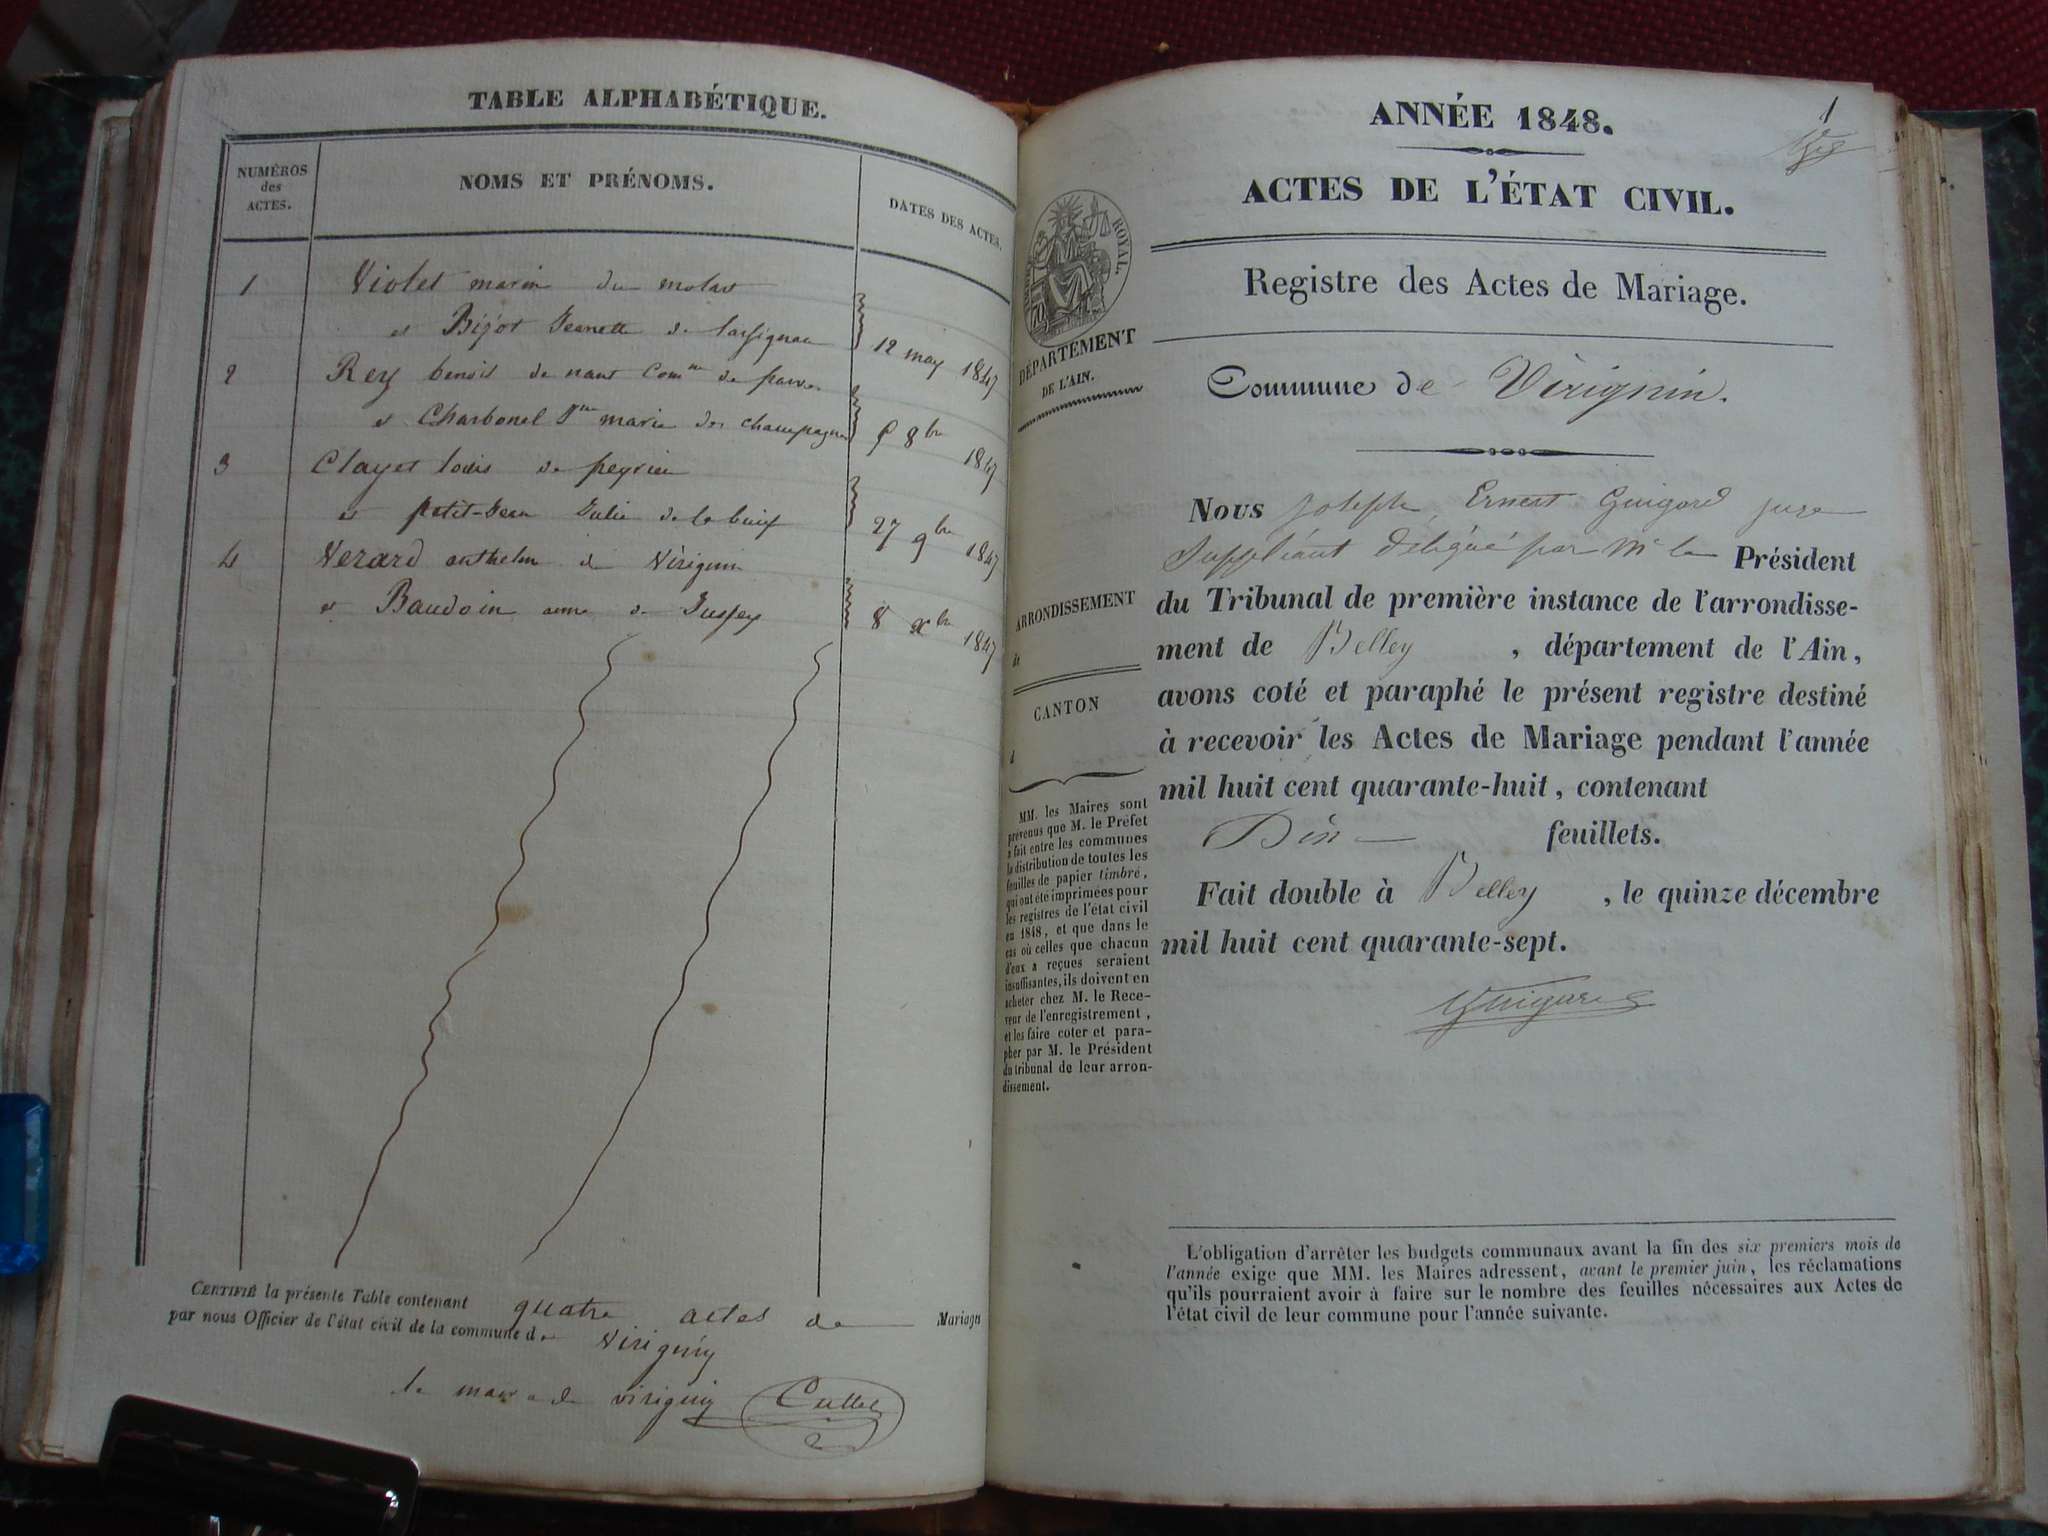 TABLE ALPHABÉTIQUE.
NUMÉROS
des
ACTES.
NOMS ET PRÉNOMS.
DATES DES ACTES.
1 Violet marin du molart
et Bijot Jeannette de 12 may 1847
2 Rey benoit de nant Comne de parves
et Charbonel marie des champagnes 8bre 1847
3 Clayet louis de peyrieu
et petit-Jean Julie 27 9bre 1847
4 Verard anthelm de Virignin
et Baudoin anne de 8 xbre 1847
CERTIFIÉ la présente Table contenant quatre actes de Mariages
par nous Officier de l'état civil de la commune de Virignin
le maire de virignin Cullet
1
ANNÉE 1848.
ACTES DE L'ÉTAT CIVIL.
Registre des Actes de Mariage.
Commune de Virignin.
ROYAL.
DÉPARTEMENT
DE L'AIN.
ARRONDISSEMENT
de
CANTON
d
MM. les Maires sont
prévenus que M. le Préfet
a fait entre les communes
la distribution de toutes les
feuilles de papier timbré,
qui ont été imprimées pour
les registres de l'état civil
en 1848, et que dans le
cas où celles que chacun
d'eux a reçues seraient
insuffisantes, ils doivent en
acheter chez M. le Rece-
veur de l'enregistrement,
et les faire coter et para-
pher par M. le Président
du tribunal de leur arron-
dissement.
Nous Joseph Ernest Guigard juge
Suppléant délégué par Mr le Président
du Tribunal de première instance de l'arrondisse-
ment de Belley, département de l'Ain,
avons coté et paraphé le présent registre destiné
à recevoir les Actes de Mariage pendant l'année
mil huit cent quarante-huit, contenant
Dix feuillets.
Fait double à Belley, le quinze décembre
mil huit cent quarante-sept.
Guigard
L'obligation d'arrêter les budgets communaux avant la fin des six premiers mois de
l'année exige que MM. les Maires adressent, avant le premier juin, les réclamations
qu'ils pourraient avoir à faire sur le nombre des feuilles nécessaires aux Actes de
l'état civil de leur commune pour l'année suivante.